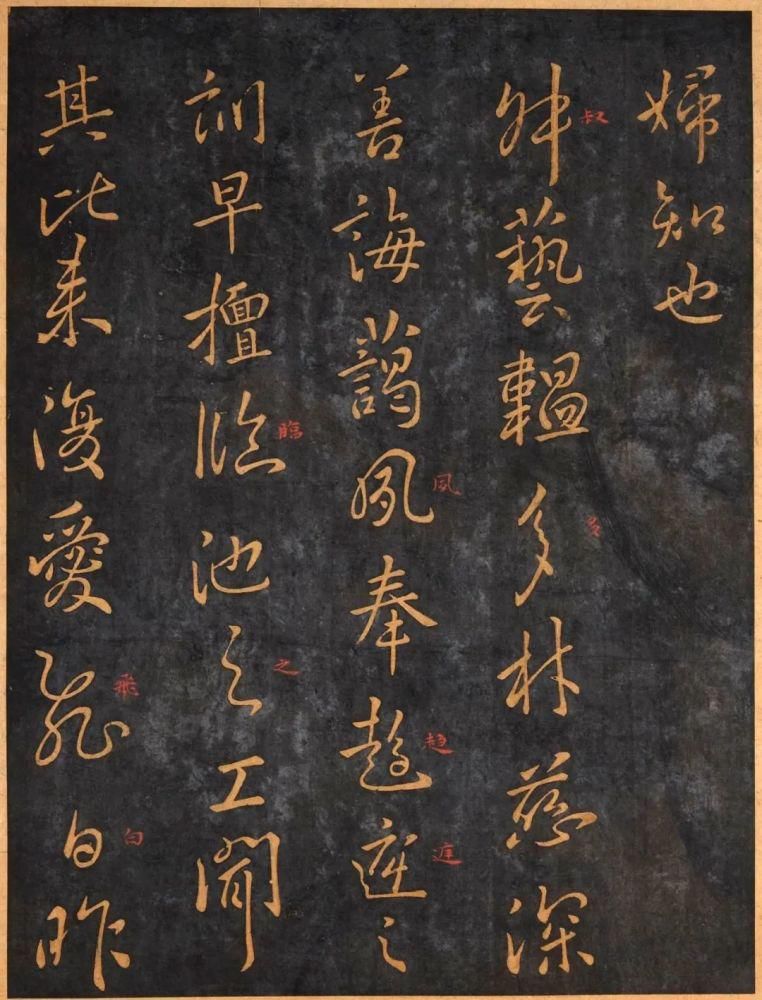 婦知也
叔藝韞多材慈深
叔
多
善誨藹夙奉趍庭之
夙
趍
庭
訓早擅臨池之工聞
臨
之
其比來復愛飛白昨
飛
白